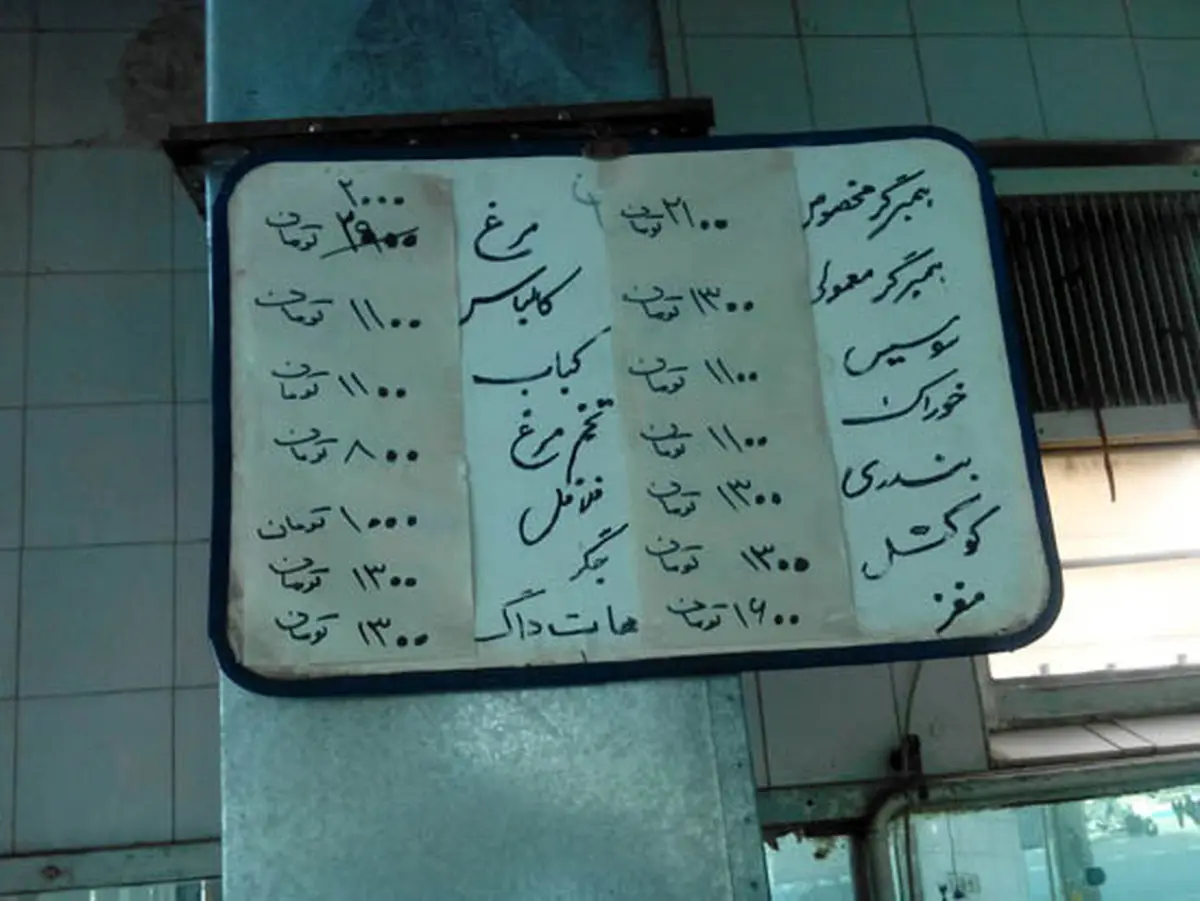 همبرگر مخصوص ۲۱۰۰ تومان
همبرگر معمولی ۱۳۰۰ تومان
سوسیس ۱۱۰۰ تومان
خوراک ۱۱۰۰ تومان
بندری ۱۳۰۰ تومان
کوکتل ۱۳۰۰ تومان
مغز ۱۶۰۰ تومان
مرغ ۲۰۰۰
تومان
کالباس ۱۱۰۰ تومان
کباب ۱۱۰۰ تومان
تخم مرغ ۸۰۰ تومان
فلافل ۱۰۰۰ تومان
جگر ۱۳۰۰ تومان
هات داگ ۱۳۰۰ تومان